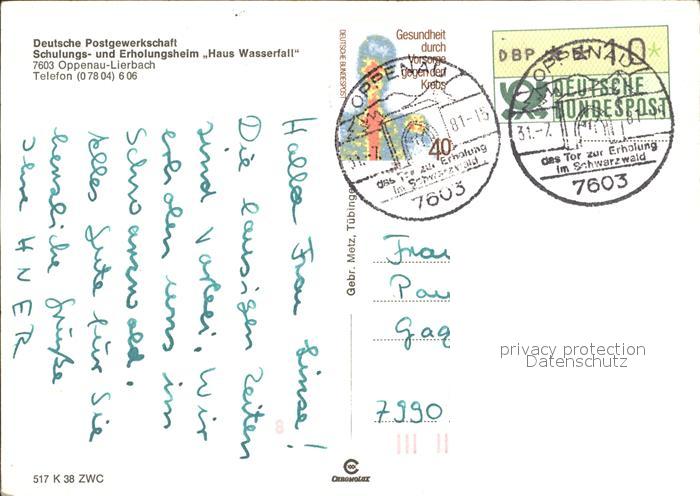 Deutsche Postgewerkschaft
Schulungs- und Erholungsheim „Haus Wasserfall"
7603 Oppenau-Lierbach
Telefon (0 78 04) 6 06
Hallo Frau
Die lausigen Zeiten
sind vorbei. Wir
erholen uns im
Schwarzwald.
Alles Gute für Sie
herzliche Grüße
517 K 38 ZWC
Gebr. Metz, Tübingen
CHROMOLUX
DEUTSCHE BUNDESPOST
Gesundheit
durch
Vorsorge
gegen den
Krebs
40
OPPENAU
31.-7. 81-15
das Tor zur Erholung
im Schwarzwald
7603
DBP 10
DEUTSCHE
BUNDESPOST
OPPENAU
31.-7. 81
das Tor zur Erholung
im Schwarzwald
7603
Frau
Pau
Gag
7990
8
privacy protection
Datenschutz